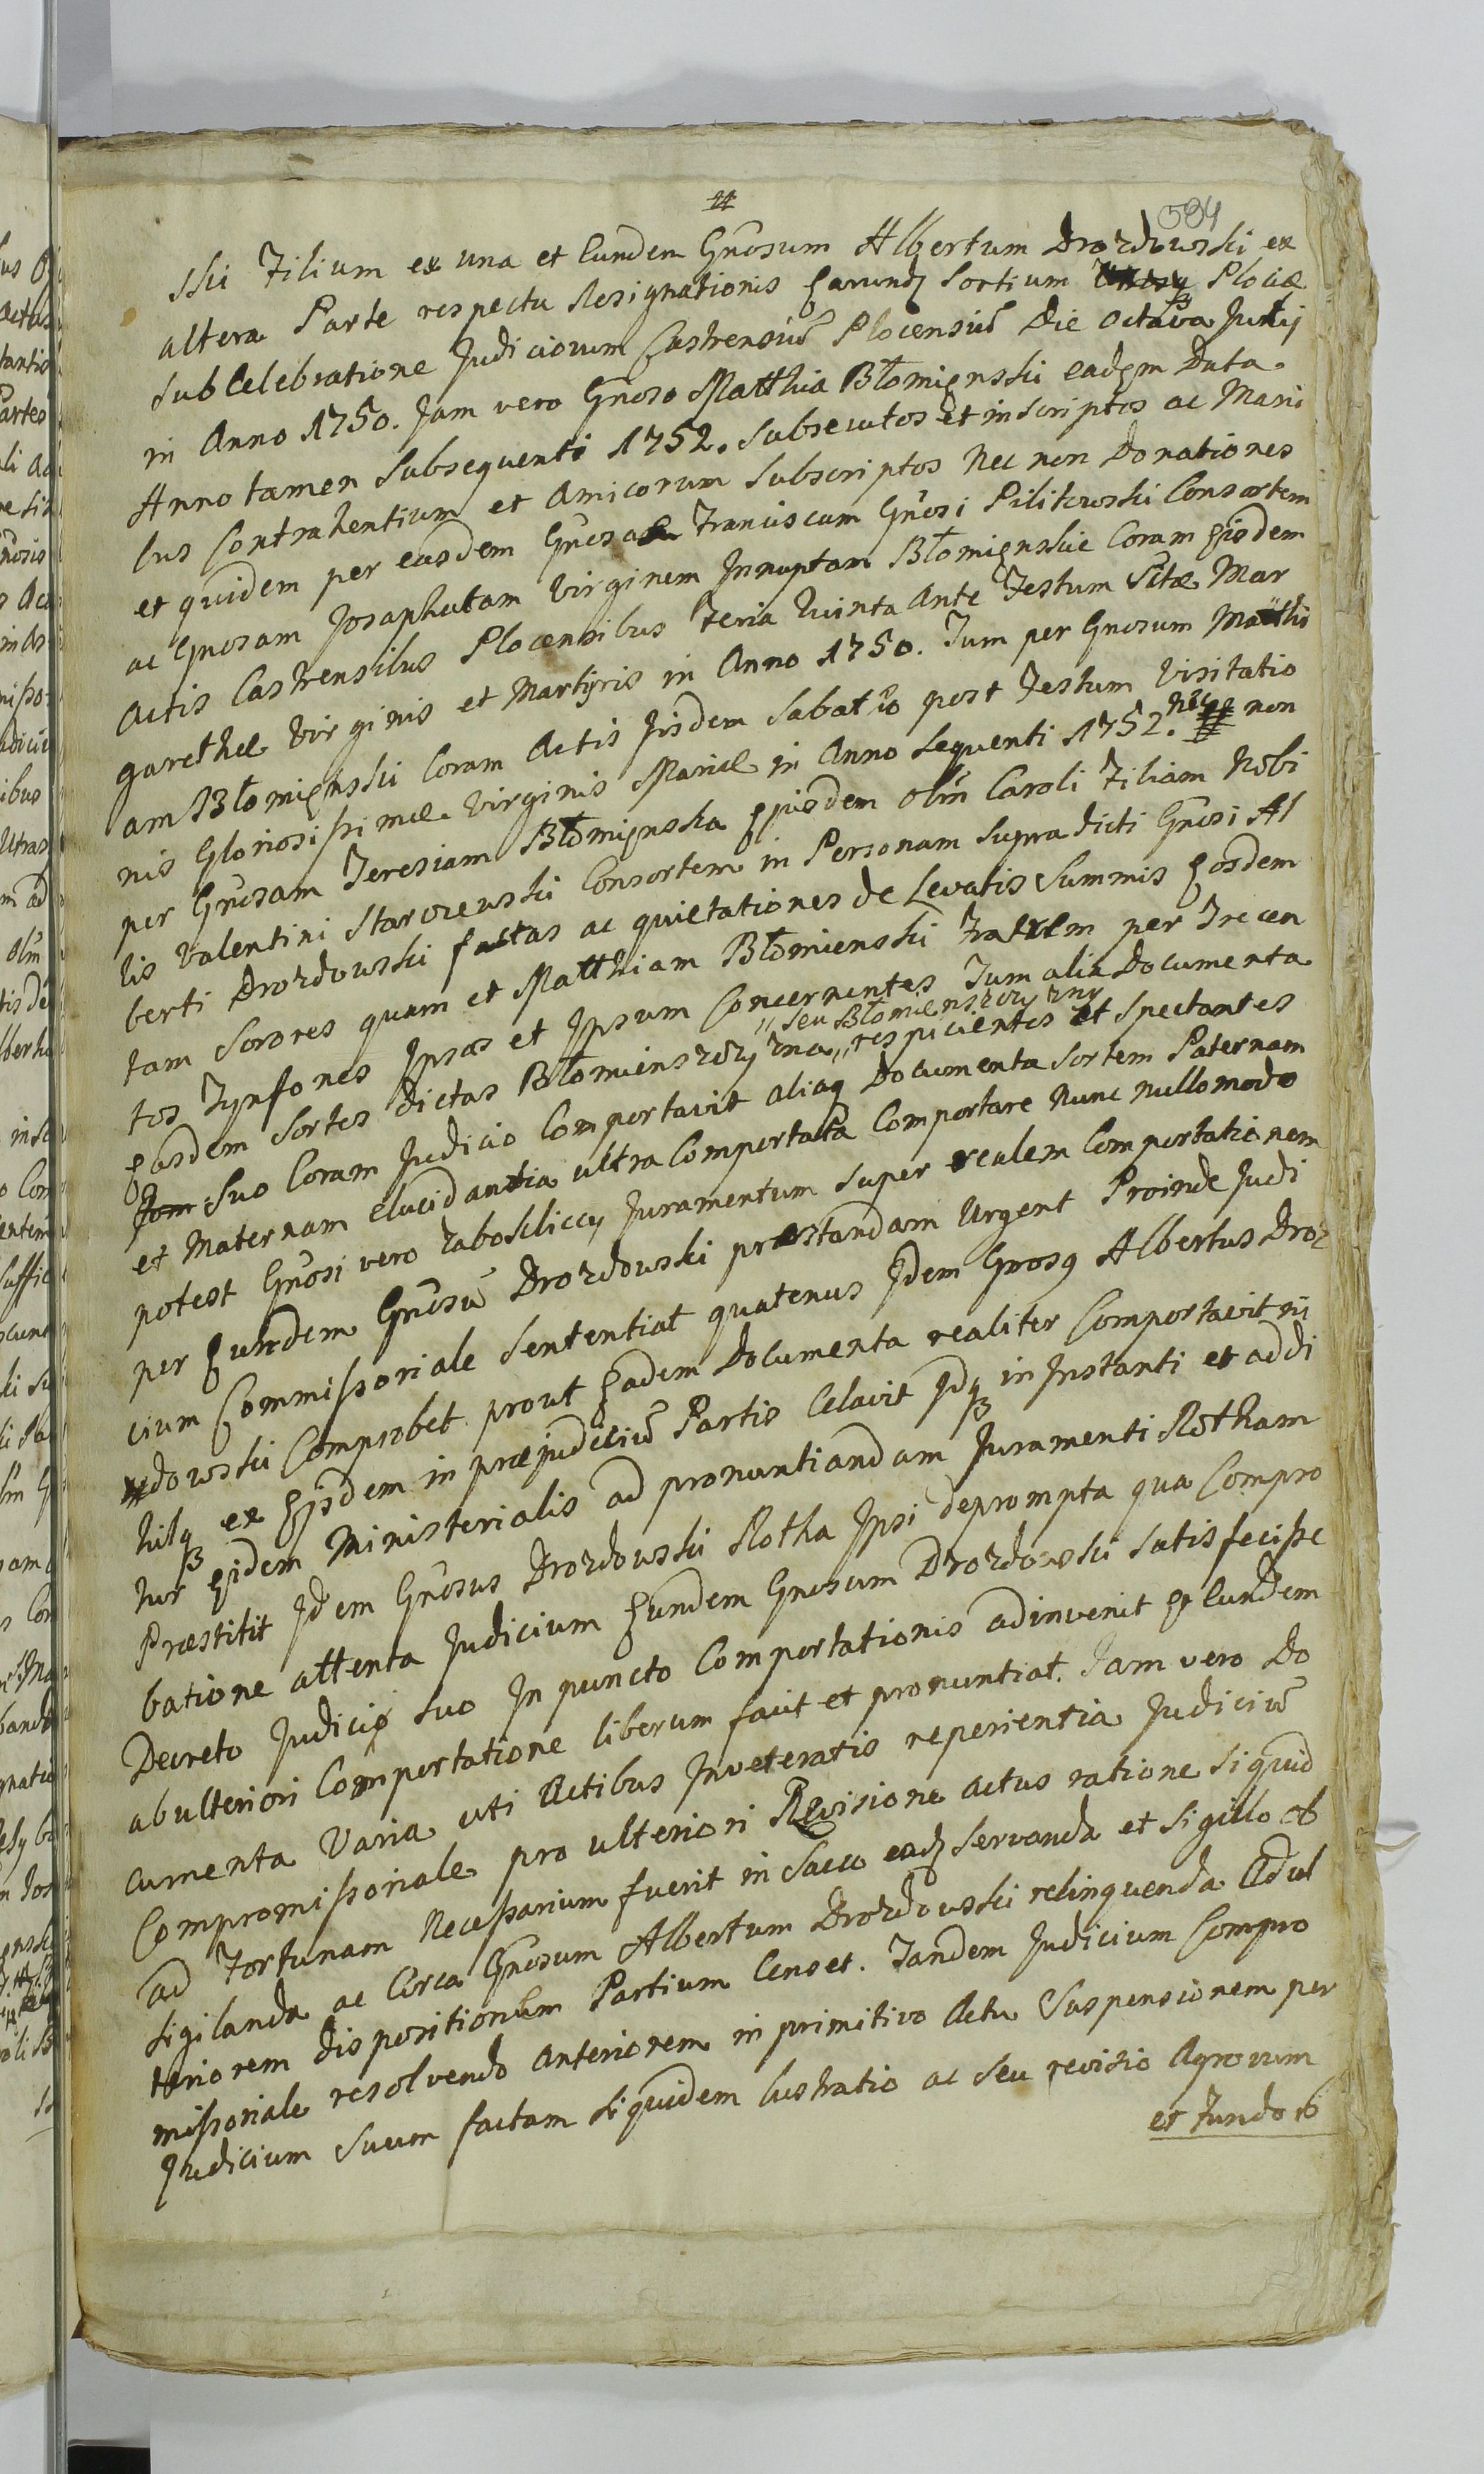 594
sski Filium ex una et Eundem Gnosum Albertum Drozdowski ex
altera Parte respectu Resignationis Earundz Sortium Plocæ
sub Celebratione Judiciorum Castrensiu Plocensiu Die octava Julij
in Anno 1750. Jam vero Gnoso Matthia Błomięnski eadem Data
Anno tamen subsequenti 1752. subsecutos et inscriptos ac Mani
bus Contrahentium et Amicorum subscriptos Nec non Donationes
et quidem per easdem Gnosam Franciscam Gnosi Pilitowski Consortem
ac Gnosam Josaphatam Virginem Innuptam Błomięnskie Coram Eisdem
Actis Castrensibus Plocensibus Feria Quinta Ante Festum Sctæ Mar
garethæ Virginis et Martyris in Anno 1750. Tum per Gnosum Matthi
am Błomięnski Coram Actis Iisdem Sabatho post Festum Visitatio
nis Gloriosissimæ Virginis Mariæ in Anno sequenti 1752. nec non
per Gnosam Teresiam Błomięnska Ejusdem olim Caroli Filiam Nobi
lis Valentini Starozenski Consortem in Personam supra dicti Gnosi Al
berti Drozdowski factas ac quietationes de Levatis Summis Eosdem
tam Sorores quam et Matthiam Błomienski Fratrem per Trecen
tos Tynfones Ipsas et Ipsum Concernentes Tum alia Documenta
„seu Błomienszczyzny
Easdem Sortes dictas Błomienszczyzna„ respicientes et spectantes
Jam suo Coram Judicio Comportavit aliaq Documenta Sortem Paternam
et Maternam elucidantia ultra Comportata Comportare Nunc nullo modo
potest Gnosi vero Zabokliccy Juramentum super realem Comportationem
per Eundem Gnosu Drozdowski præstandam Urgent Proinde Judi
cium Commissoriale Sententiat quatenus Idem Gnosq Albertus Droz
dowski Comprobet prout Eadem Documenta realiter Comportavit ni
hilq ex Eisdem in præjudiciu Partis Celavit Idq in Instanti et addi
tur Eidem Ministerialis ad pronuntiandam Juramenti Rotham
Præstitit Idem Gnosus Drozdowski Rotha Ipsi deprompta qua Compro
batione attenta Judicium Eundem Gnosum Drozdowski satisfecisse
Decreto Judicij suo In puncto Comportationis adinvenit et Eundem
ab ulteriori Comportatione liberum facit et pronuntiat. Jam vero Do
cumenta Varia uti Actibus Inveteratis reperientia Judiciu
Compromissoriale pro ulteriori Revisione actus ratione si quid
ad Fortunam Necessarium fuerit in Sacco eadz servanda et Sigillo ob
sigilanda ac Circa Gnosum Albertum Drozdowski relinquenda Ad ul
teriorem dispositionem Partium Censet. Tandem Judicium Compro
missoriale resolvendo anteriorem in primitivo Actu Suspensionem per
Judicium Suum factam siquidem lustratio ac seu revisio Agrorum
et Fundo